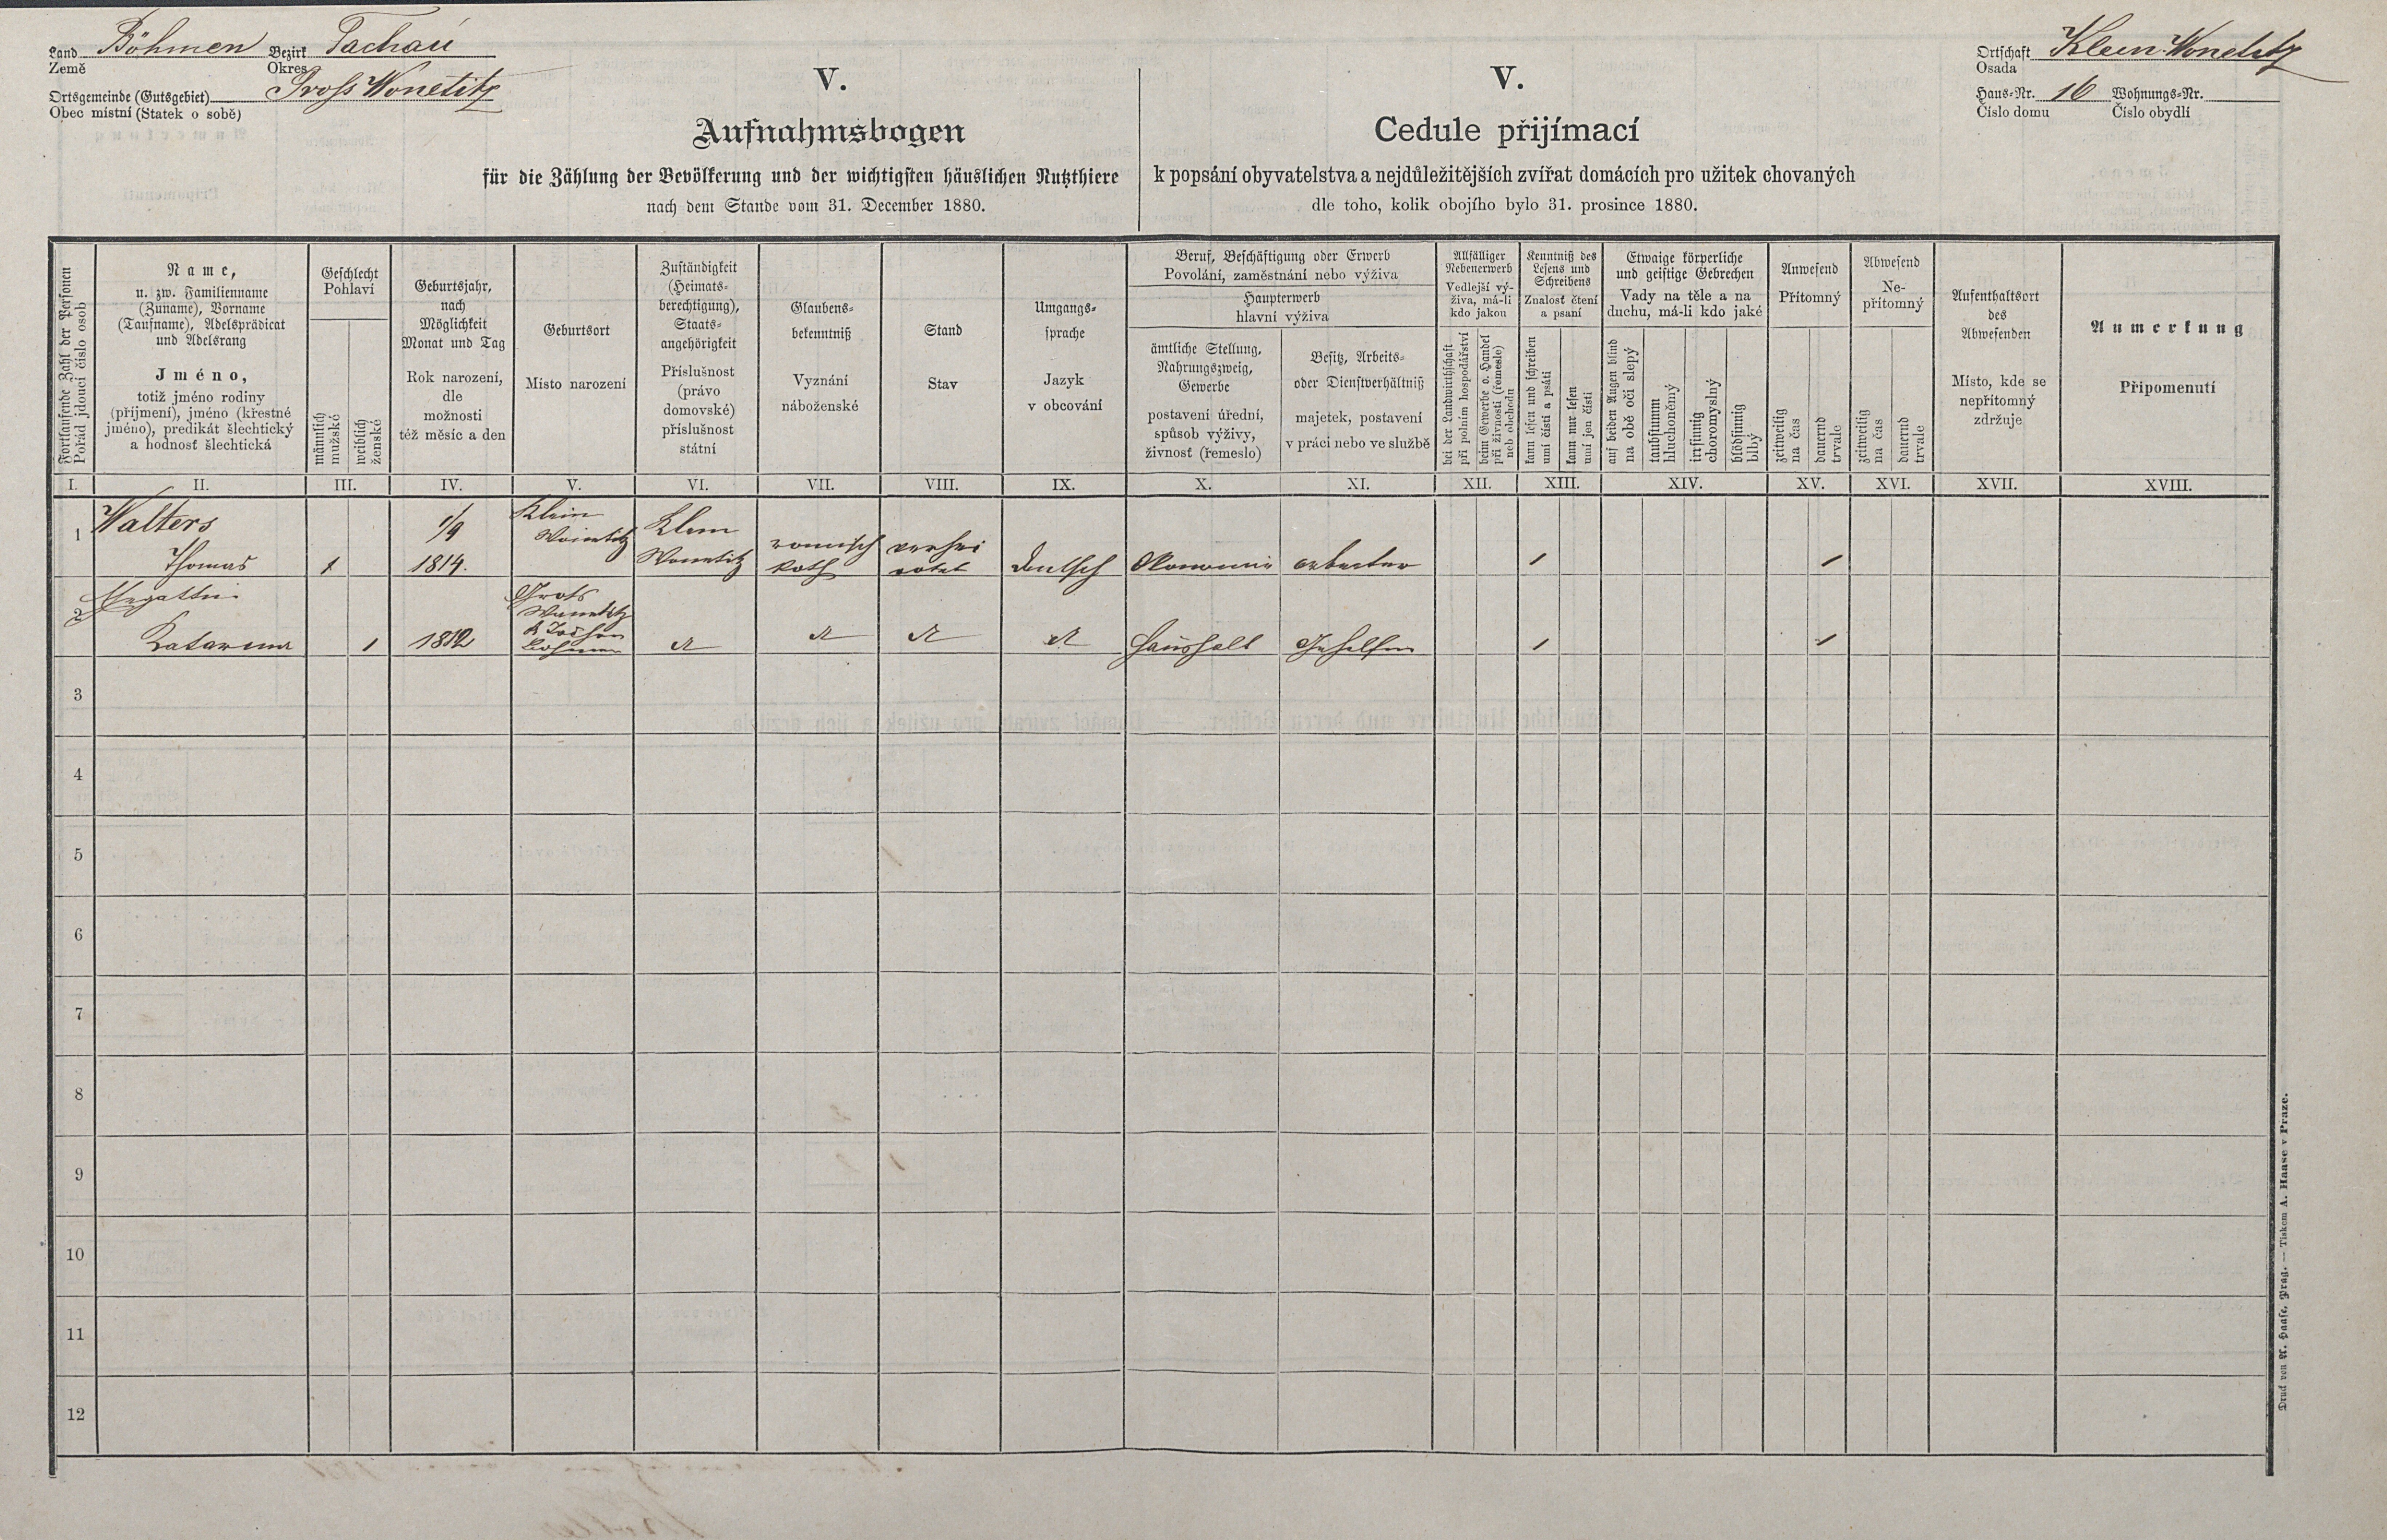 Land Böhmen Bezirk Tachau
Země Okres
Ortsgemeinde (Gutsgebiet) Gross Wonetitz
Obec místní (Statek o sobě)
V.
Aufnahmsbogen
für die Zählung der Bevölkerung und der wichtigsten häuslichen Nutzthiere
nach dem Stande vom 31. December 1880.
V.
Cedule přijímací
k popsání obyvatelstva a nejdůležitějších zvířat domácích pro užitek chovaných
dle toho, kolik obojího bylo 31. prosince 1880.
Ortschaft Klein Wonetitz
Osada
Haus-Nr. 16 Wohnungs-Nr.
Číslo domu Číslo obydlí
Fortlaufende Zahl der Personen
Pořád jdoucí číslo osob
Name,
u. zw. Familienname
(Zuname), Vorname
(Taufname), Adelsprädicat
und Adelsrang
Jméno,
totiž jméno rodiny
(příjmení), jméno (křestné
jméno), predikát šlechtický
a hodnosť šlechtická
Geschlecht
Pohlaví
männlich
mužské
weiblich
ženské
Geburtsjahr,
nach
Möglichkeit
Monat und Tag
Rok narození,
dle
možnosti
též měsíc a den
Geburtsort
Místo narození
Zuständigkeit
(Heimats-
berechtigung),
Staats-
angehörigkeit
Příslušnost
(právo
domovské)
příslušnost
státní
Glaubens-
bekenntniß
Vyznání
náboženské
Stand
Stav
Umgangs-
sprache
Jazyk
v obcování
Beruf, Beschäftigung oder Erwerb
Povolání, zaměstnání nebo výživa
Haupterwerb
hlavní výživa
ämtliche Stellung,
Nahrungszweig,
Gewerbe
postavení úřední,
spůsob výživy,
živnosť (řemeslo)
Besitz, Arbeits-
oder Dienstverhältniß
majetek, postavení
v práci nebo ve službě
Allfälliger
Nebenerwerb
Vedlejší vý-
živa, má-li
kdo jakou
bei der Landwirthschaft
při polním hospodářství
beim Gewerbe o. Handel
při živnosti (řemesle)
neb obchodu
Kenntniß des
Lesens und
Schreibens
Znalosť čtení
a psaní
kann lesen und schreiben
umí čísti a psáti
kann nur lesen
umí jen čísti
Etwaige körperliche
und geistige Gebrechen
Vady na těle a na
duchu, má-li kdo jaké
auf beiden Augen blind
na obě oči slepý
taubstumm
hluchoněmý
irrsinnig
choromyslný
blödsinnig
blbý
Anwesend
Přítomný
zeitweilig
na čas
dauernd
trvale
Abwesend
Ne-
přítomný
zeitweilig
na čas
dauernd
trvale
Aufenthaltsort
des
Abwesenden
Místo, kde se
nepřítomný
zdržuje
Anmerkung
Připomenutí
I. II. III. IV. V. VI. VII. VIII. IX. X. XI. XII. XIII. XIV. XV. XVI. XVII. XVIII.
1 Walters 1/9 Klein Klein
Thomas 1 1814. Wonetitz romisch kath verheirotet deutsch Okonomie arbeiter 1 1
2 Gross
Wonetitz
Katarina 1 1812 Böhmen Haushalt Gehilfin 1 1
3
4
5
6
7
8
9
10
11
12
Druck von A. Haase, Prag. — Tiskem A. Haase v Praze.